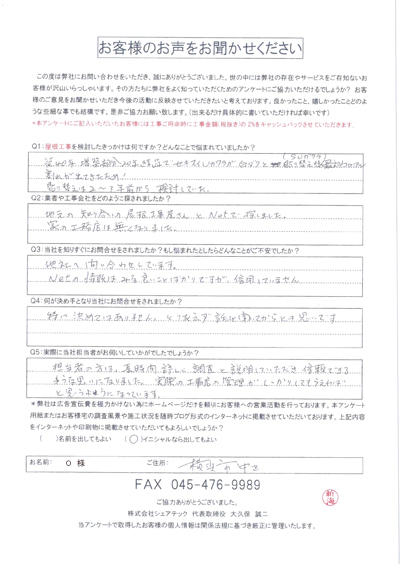 お客様のお声をお聞かせください
この度は弊社にお問い合わせをいただき、誠にありがとうございました。世の中には弊社の存在やサービスをご存知ないお
客様が沢山いらっしゃいます。その方たちに弊社をよく知っていただくためのアンケートにご協力いただけるでしょうか？ お客
様のご意見をお聞かせいただき今後の活動に反映させていただきたいと考えております。良かったこと、嬉しかったことどのよ
うな些細な事でも結構です。是非ご協力お願い致します。（出来るだけ具体的に書いていただければ幸いです）
*本アンケートにご記入いただいたお客様には工事ご用命時に工事金額(税抜き)の2%をキャッシュバックさせていただきます。
Q1:屋根工事を検討したきっかけは何ですか？どんなことで悩まれていました？
割れが出てきたため！
Q2:業者や工事会社をどのように探されましたか？
地元の知り合いの屋根工事屋さんとNetで探しました。
家の工務店は無くなりました。
Q3:当社を知りすぐにお問合せをされましたか？もし悩まれたとしたらどんなことがご不安でしたか？
他社へ問い合わせしています。
Netの情報はみな良いことばかりですが、信用していません
Q4:何が決め手となり当社にお問合せをされましたか？
特に決めてはありません。とりあえず話を聞いてからとは思いです
Q5:実際に当社担当者がお伺いしていかがでしたでしょうか？
担当者の方は、長時間 詳しく 調査と説明していただき 信頼できる
ような思いになりました。実際の工事店の管理がしっかりしてもらえれば
と思うようになっています。
*弊社は広告宣伝費を極力かけない為にホームページだけを頼りにお客様への営業活動を行っております。本アンケート
用紙またはお客様宅の調査風景や施工状況を随時ブログ形式のインターネットに掲載させていただいております。上記内容
をインターネットや印刷物に掲載させていただいてもよろしいでしょうか？
( )名前を出してもよい (○)イニシャルなら出してもよい
お名前: O 様 ご住所: 横浜市中区
FAX 045-476-9989
ご協力ありがとうございました。
株式会社シェアテック 代表取締役 大久保 誠二
当アンケートで取得したお客様の個人情報は関係法規に基づき厳正に管理いたします。